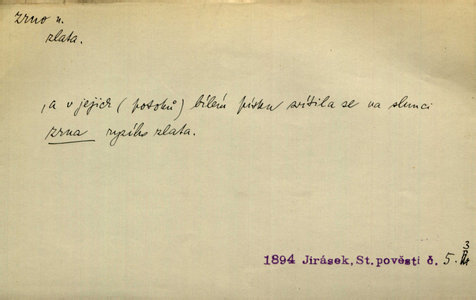 zrno n.
zlata.
, a v jejich (potoků) bílém písku svítila se na slunci
zrna ryzího zlata.
1894 Jirásek, St. pověsti č. 5. 3